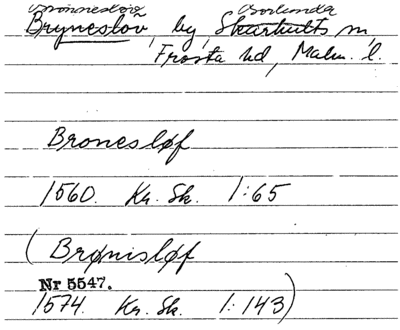 Brönneslöv Österlunda
Bryneslöv, by, Skarhults sn,
Frosta hd, Malm. l.
Bronesløf
1560. Kr. Sk. 1:65
(Brønisløf
Nr 5547.
1574. Kr. Sk. 1:143)